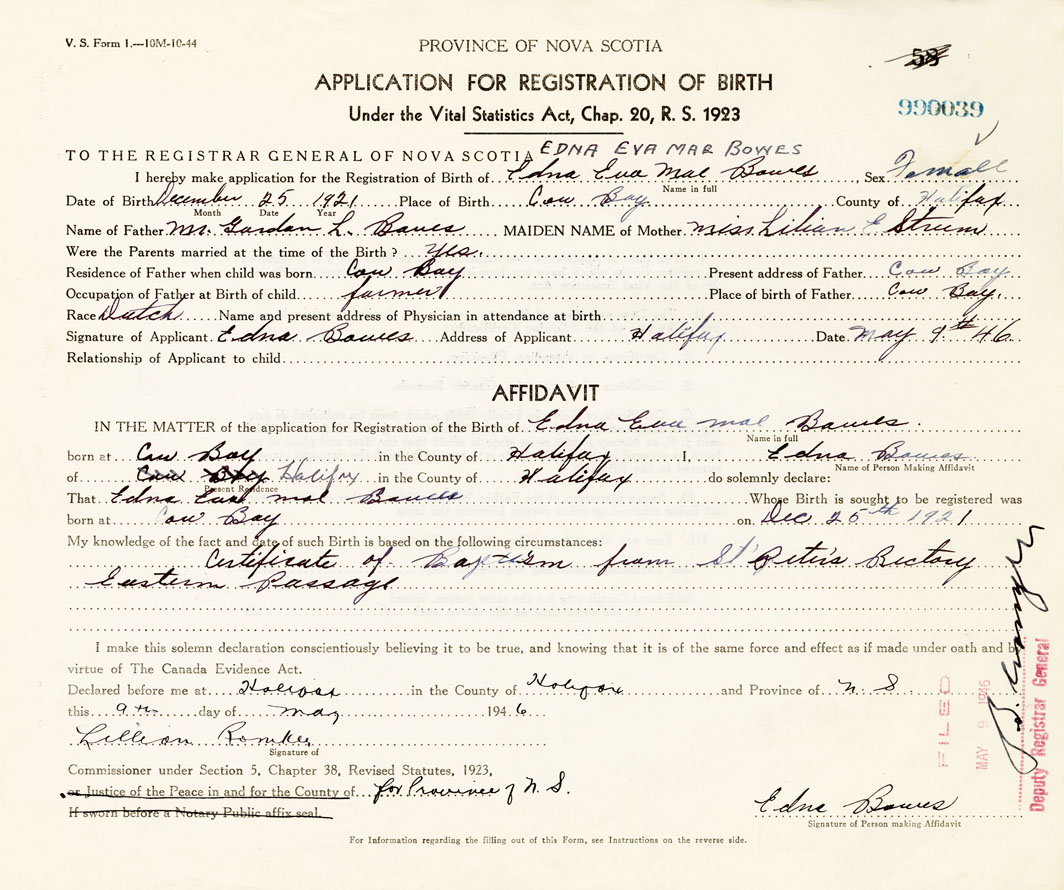 V. S. Form 1.—10M-10-44
PROVINCE OF NOVA SCOTIA
58
APPLICATION FOR REGISTRATION OF BIRTH
990039
Under the Vital Statistics Act, Chap. 20, R. S. 1923
EDNA EVA MAE BOWES
TO THE REGISTRAR GENERAL OF NOVA SCOTIA
I hereby make application for the Registration of Birth of Edna Eva Mae Bowes, Sex Female
Name in full
Date of Birth December 25 1921 Place of Birth Cow Bay County of Halifax
Month Date Year
Name of Father Mr. Gordon L. Bowes MAIDEN NAME of Mother Miss Lilian E Strum
Were the Parents married at the time of the Birth? Yes.
Residence of Father when child was born Cow Bay Present address of Father Cow Bay
Occupation of Father at Birth of child farmer Place of birth of Father Cow Bay.
Race Dutch Name and present address of Physician in attendance at birth
Signature of Applicant Edna Bowes Address of Applicant Halifax Date May 9th 46
Relationship of Applicant to child
AFFIDAVIT
IN THE MATTER of the application for Registration of the Birth of Edna Eva Mae Bowes.
Name in full
born at Cow Bay in the County of Halifax I, Edna Bowes
Name of Person Making Affidavit
of Cow Bay Halifax in the County of Halifax do solemnly declare:
Present Residence
That Edna Eva Mae Bowes Whose Birth is sought to be registered was
born at Cow Bay on Dec 25th 1921
My knowledge of the fact and date of such Birth is based on the following circumstances:
Certificate of Baptism from St Peter's Rectory
Eastern Passage
I make this solemn declaration conscientiously believing it to be true, and knowing that it is of the same force and effect as if made under oath and by
virtue of The Canada Evidence Act.
Declared before me at Halifax in the County of Halifax and Province of N S
this 9th day of May 1946
Lillian Romkey
Signature of
Commissioner under Section 5, Chapter 38, Revised Statutes, 1923,
or Justice of the Peace in and for the County of for Province of N. S.
If sworn before a Notary Public affix seal.
Edna Bowes
Signature of Person making Affidavit
For Information regarding the filling out of this Form, see Instructions on the reverse side.
FILED
MAY 9 1946
Deputy Registrar General